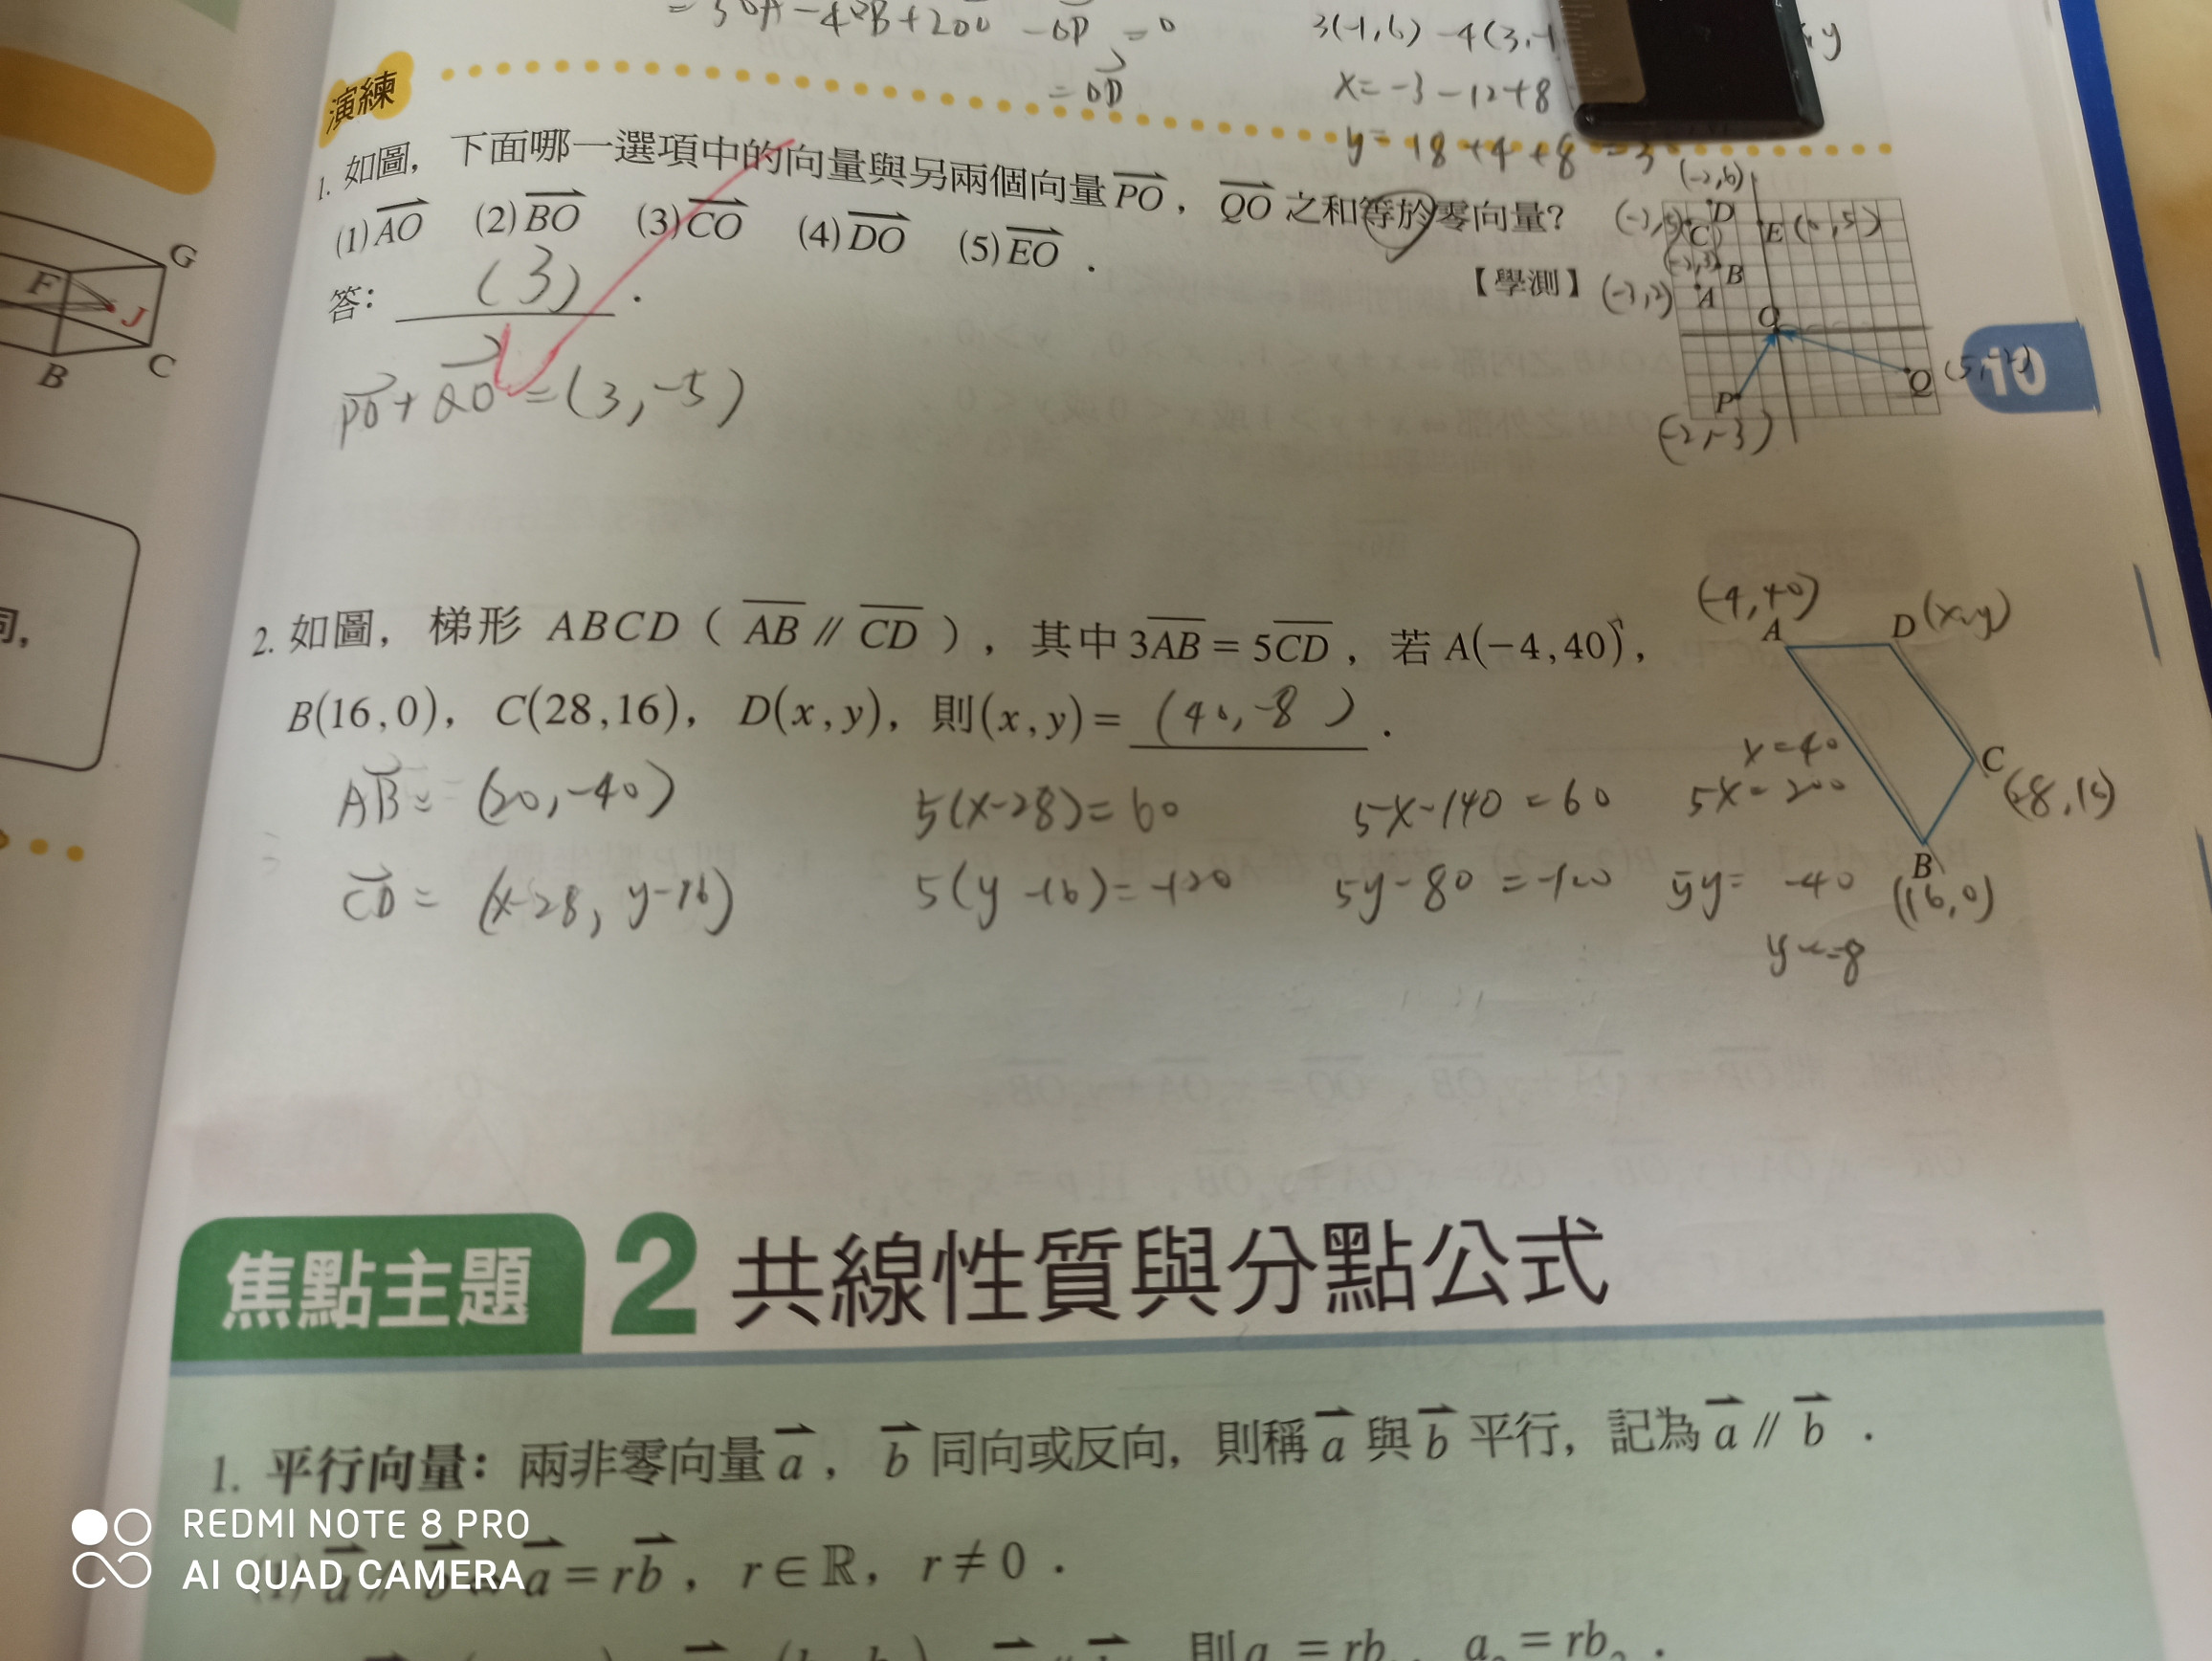 = 3OA-4OB+2OC -OP = 0
= OD
3(-1,6) -4(3,-1
x= -3 -12+8
y= 18 +4 +8 = 3
演練
1. 如圖，下面哪一選項中的向量與另兩個向量PO，QO之和等於零向量？
(1)AO (2)BO (3)CO (4)DO (5)EO．
【學測】
答：(3)．
PO+QO=(3,-5)
(-2,6)
D
C
E (0,5)
B
A
(-3,2)
O
P
(-2,-3)
Q (5,-2)
10
G
F
J
B
C
2. 如圖，梯形 ABCD（AB // CD），其中3AB=5CD，若A(-4,40)，
B(16,0)，C(28,16)，D(x,y)，則(x,y)= (40,-8)．
AB= (20,-40)
CD= (x-28, y-16)
5(x-28)=60
5(y-16)=-120
5x-140=60
5y-80=-120
x=40
5x=200
5y= -40
y=-8
(-4,40)
A
D(x,y)
C
B
(16,0)
焦點主題 2 共線性質與分點公式
1. 平行向量：兩非零向量a，b同向或反向，則稱a與b平行，記為a // b．
a = rb，r∈ℝ，r≠0．
則a = rb，a = rb．
REDMI NOTE 8 PRO
AI QUAD CAMERA